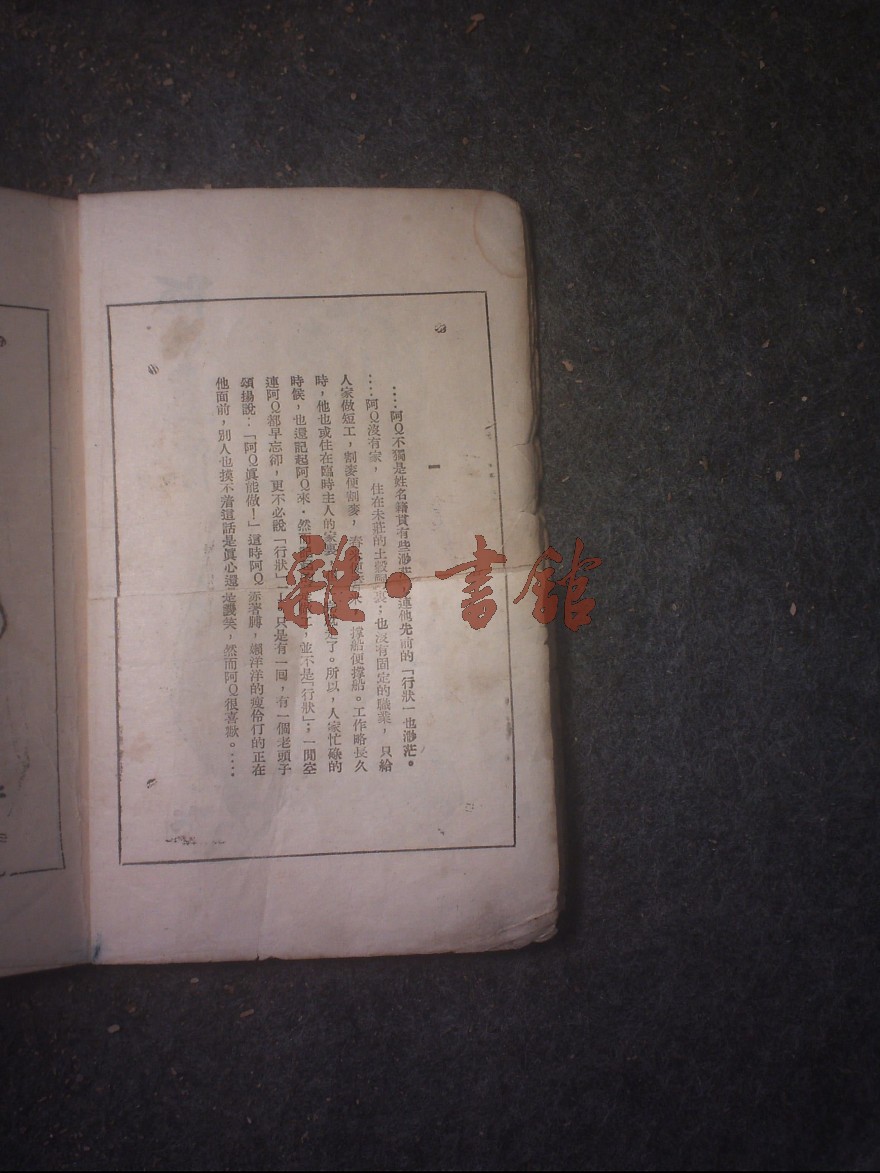 一
….阿Q不獨是姓名籍貫有些渺茫 連他先前的「行狀」也渺茫。
….阿Q沒有家，住在未莊的土穀祠裏；也沒有固定的職業，只給
人家做短工，割麥便割麥，春米便 撐船便撐船。工作略長久
時，他也或住在臨時主人的家裏 了。所以，人家忙碌的
時候，也還記起阿Q來．然而 並不是「行狀」；一閒空
連阿Q都早忘却，更不必說「行狀」 只是有一回，有一個老頭子
頌揚說：「阿Q眞能做！」這時阿Q 赤着膊，嬾洋洋的瘦伶仃的正在
他面前，別人也摸不着這話是眞心還是譏笑，然而阿Q很喜歡。….
雜·書館